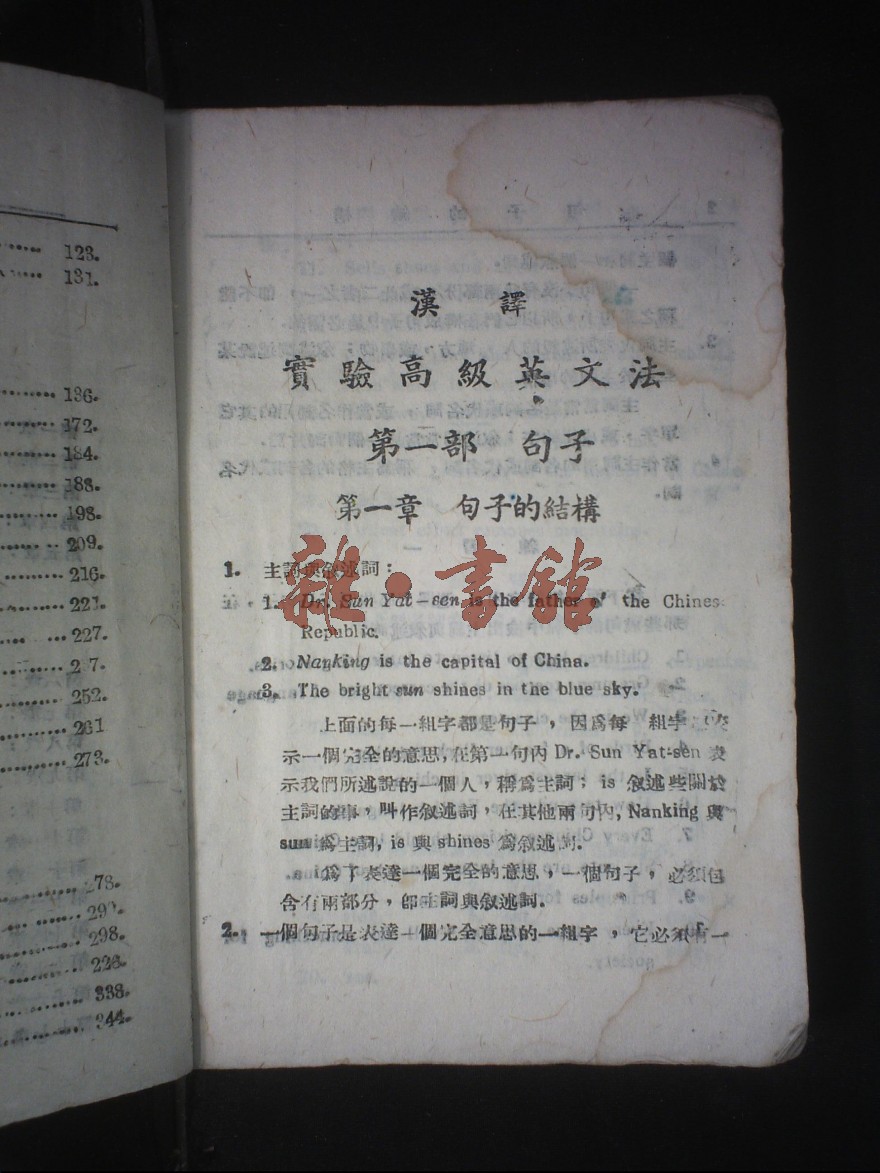 123.
131.
136.
172.
184.
188.
198.
209.
216.
221.
227.
252.
261
273.
278.
298.
226.
338.
344.
漢譯
實驗高級英文法
第一部 句子
第一章 句子的結構
1. 主詞與敘述詞:
1. Dr. Sun Yat-sen is the father of the Chines
Republic.
2. Nanking is the capital of China.
3. The bright sun shines in the blue sky.
上面的每一組字都是句子,因爲每 組字
示一個完全的意思,在第一句內 Dr. Sun Yat-sen 表
示我們所述說的一個人,稱爲主詞; is 敘述些關於
主詞的事,叫作敘述詞,在其他兩句內, Nanking 與
sun 爲主詞, is 與 shines 爲敘述詞.
爲了表達一個完全的意思,一個句子,必須包
含有兩部分,卽主詞與敘述詞.
2. 一個句子是表達一個完全意思的一組字,它必須有一
雜·書館